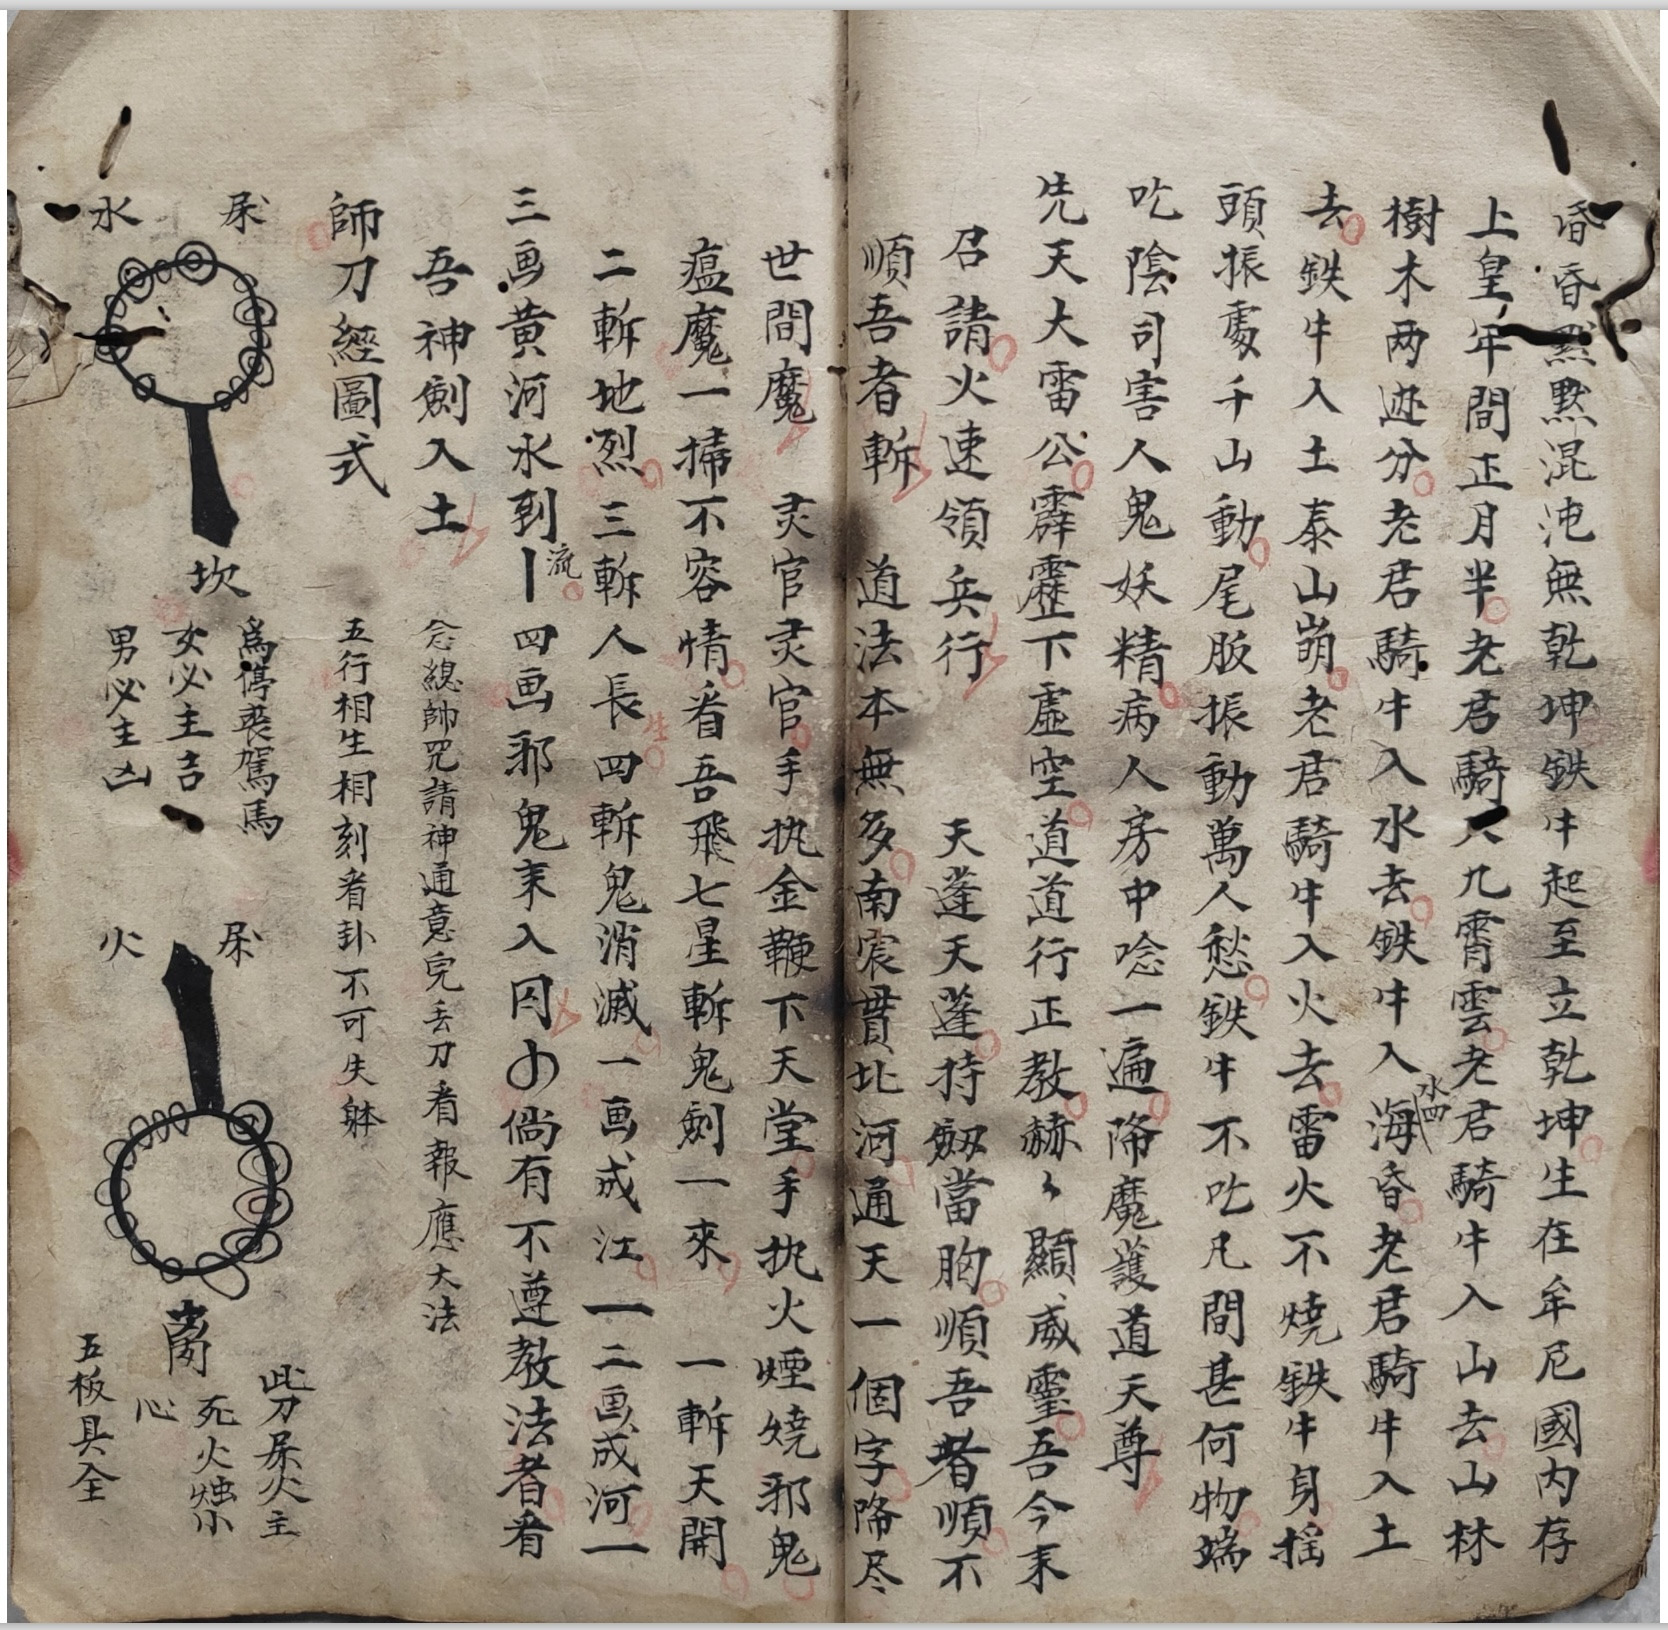 昏昏默默混沌無乾坤鉄牛起至立乾坤生在牟尼國内存
上皇年間正月半老君騎入九霄雲老君騎牛入山去山林
樹木两边分老君騎牛入水去鉄牛入海水四昏老君騎牛入土
去鉄牛入土泰山崩老君騎牛入火去雷火不燒鉄牛身摇
頭振處千山動尾股振動萬人愁鉄牛不吃凡間甚何物端
吃陰司害人鬼妖精病人房中唸一遍降魔護道天尊
先天大雷公霹靂下虚空道道行正教赫々顯威靈吾今来
召請火速領兵行 天蓬天蓬持劔當胸順吾者順不
順吾者斬 道法本無多南宸貫北河通天一個字降尽
世間魔 灵官灵官手执金鞭下天堂手执火煙燒邪鬼
瘟魔一掃不容情看吾飛七星斬鬼劍一來 一斬天開
二斬地烈三斬人長生四斬鬼消滅一画成江一二画成河一
三画黄河水到流丨四画邪鬼来入囚倘有不遵教法者看
吾神劍入土 念總帥咒請神通意完丢刀看報應大法
師刀經圖式 五行相生相刻看卦不可失躰
尿 水
坎
爲停喪駕馬
女必主吉
男必主凶
尿 火
离
此刀尿火主
死火燭小
心
五板具全